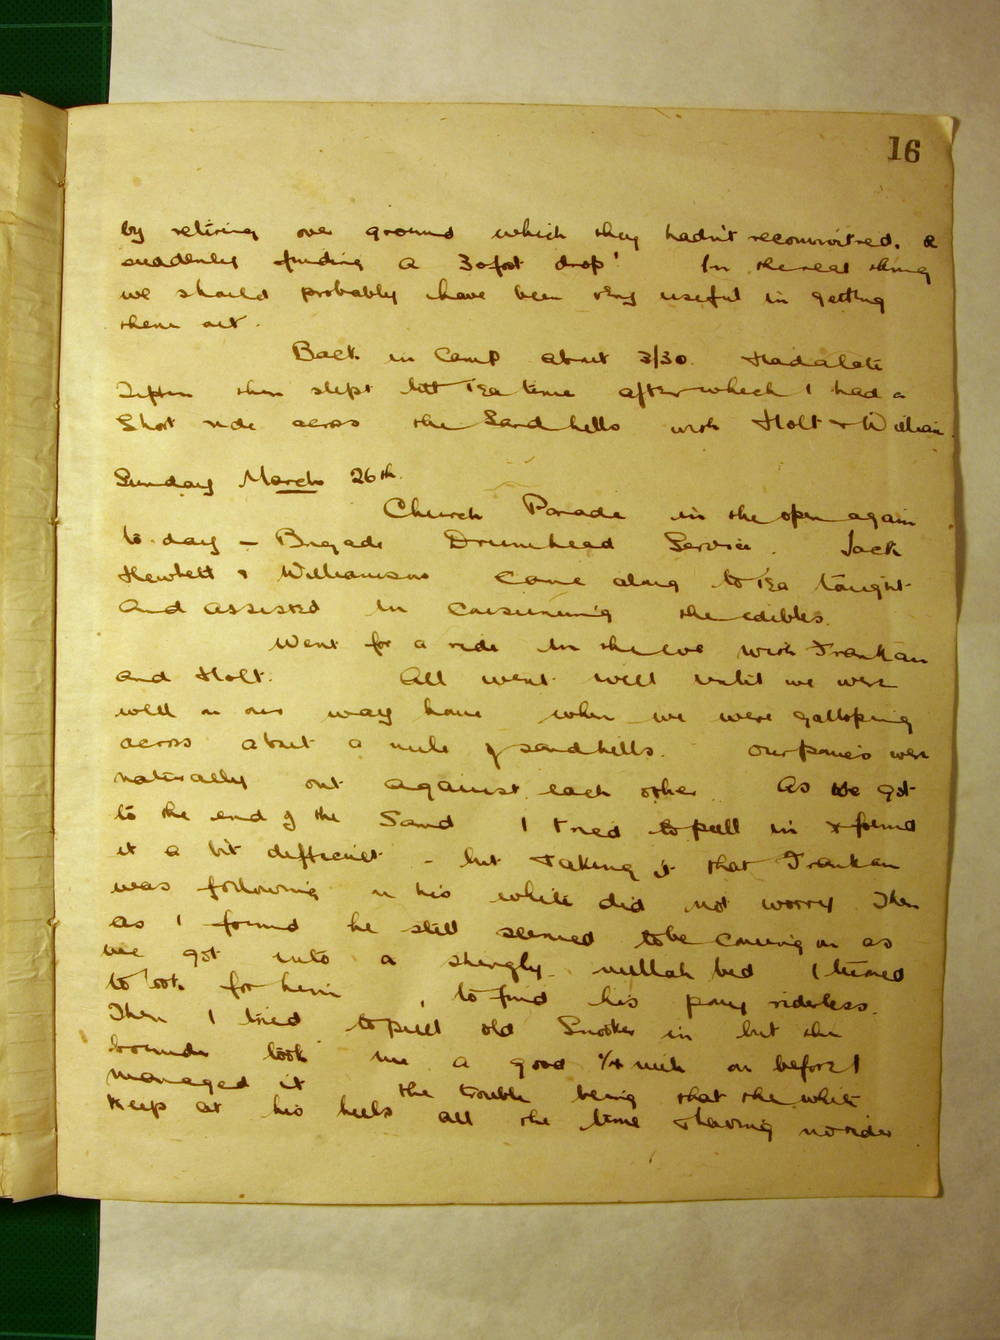 16
by retiring over ground which they hadn't reconnoitred. &
suddenly finding a 30 foot drop! In the real thing
we should probably have been very useful in getting
them out.
Back in Camp about 3/30. Had a late
Tiffin then slept till Tea time after which I had a
Short ride across the Sandhills with Holt &
Sunday March 26th.
Church Parade in the open again
to-day – Brigade Drumhead Service. Jack
Hewlett & Williamson came along to Tea tonight
and assisted in consuming the edibles.
Went for a ride in the eve with
and Holt. All went well until we were
well on our way home when we were galloping
across about a mile of sandhills. Our ponies were
naturally out against each other. As we got
to the end of the Sand I tried to pull in & found
it a bit difficult – but taking it that
was following on his white did not worry. Then
as I found he still seemed to be coming on as
we got into a shingly nullah bed I turned
to look for him, to find his pony riderless.
Then I tried to pull old Snooker in but the
bounder took me a good 1/4 mile on before I
managed it the trouble being that the white
keep at his heels all the time & having no rider